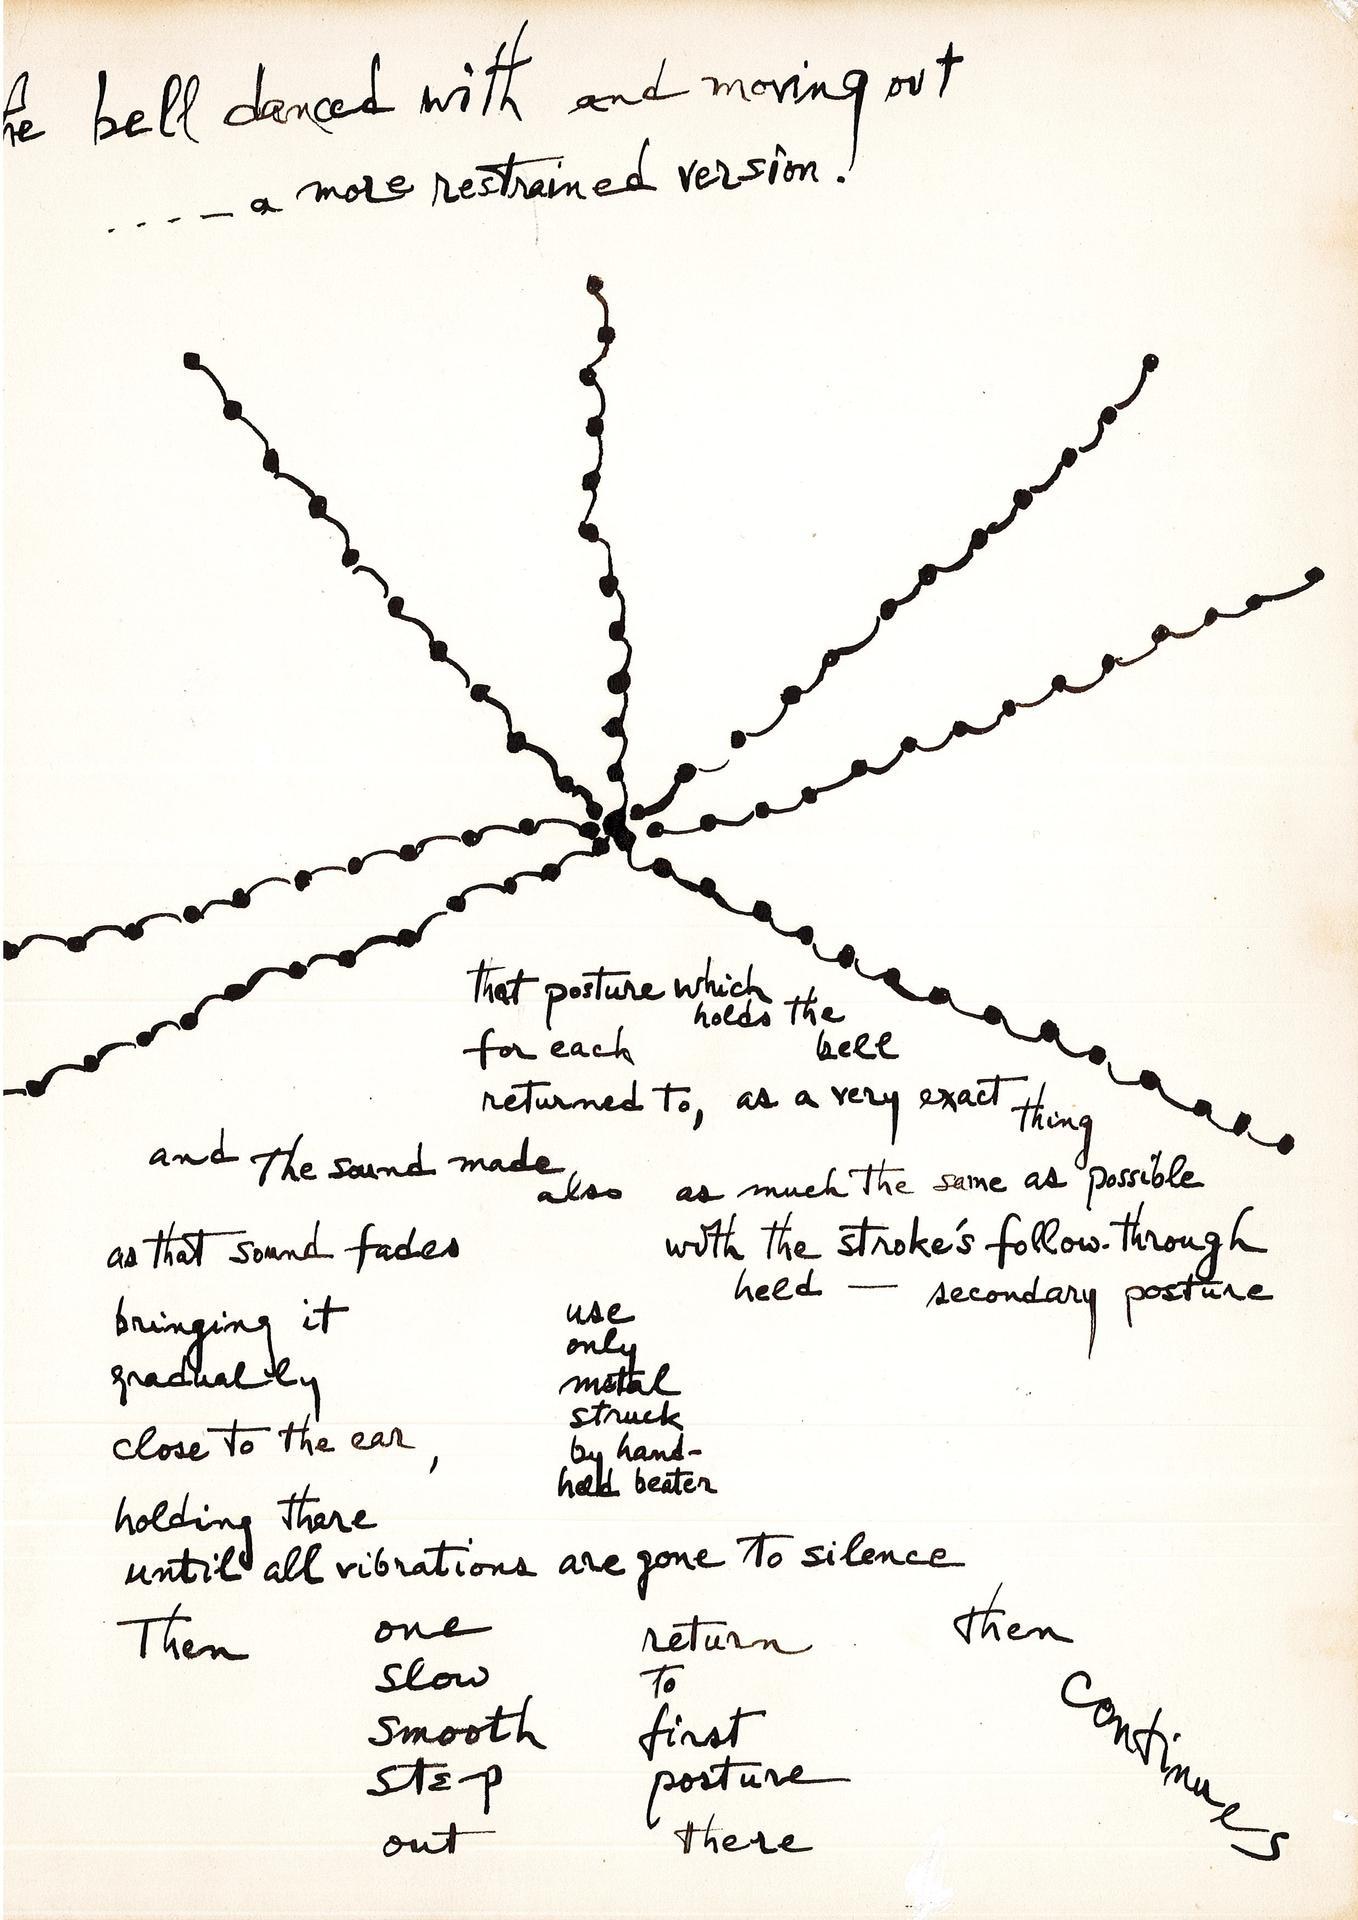 he bell danced with and moving out
. . - - — a more restrained version.
that posture which
holds the
for each bell
returned to, as a very exact
thing
and The sound made,
also as much the same as possible
as that sound fades with the stroke's follow-through
held — secondary posture
bringing it
gradually
close to the ear,
holding there
use
only
metal
struck
by hand-
held beater
until all vibrations are gone to silence
Then
one
slow
smooth
step
out
return
to
first
posture
there
then
continues